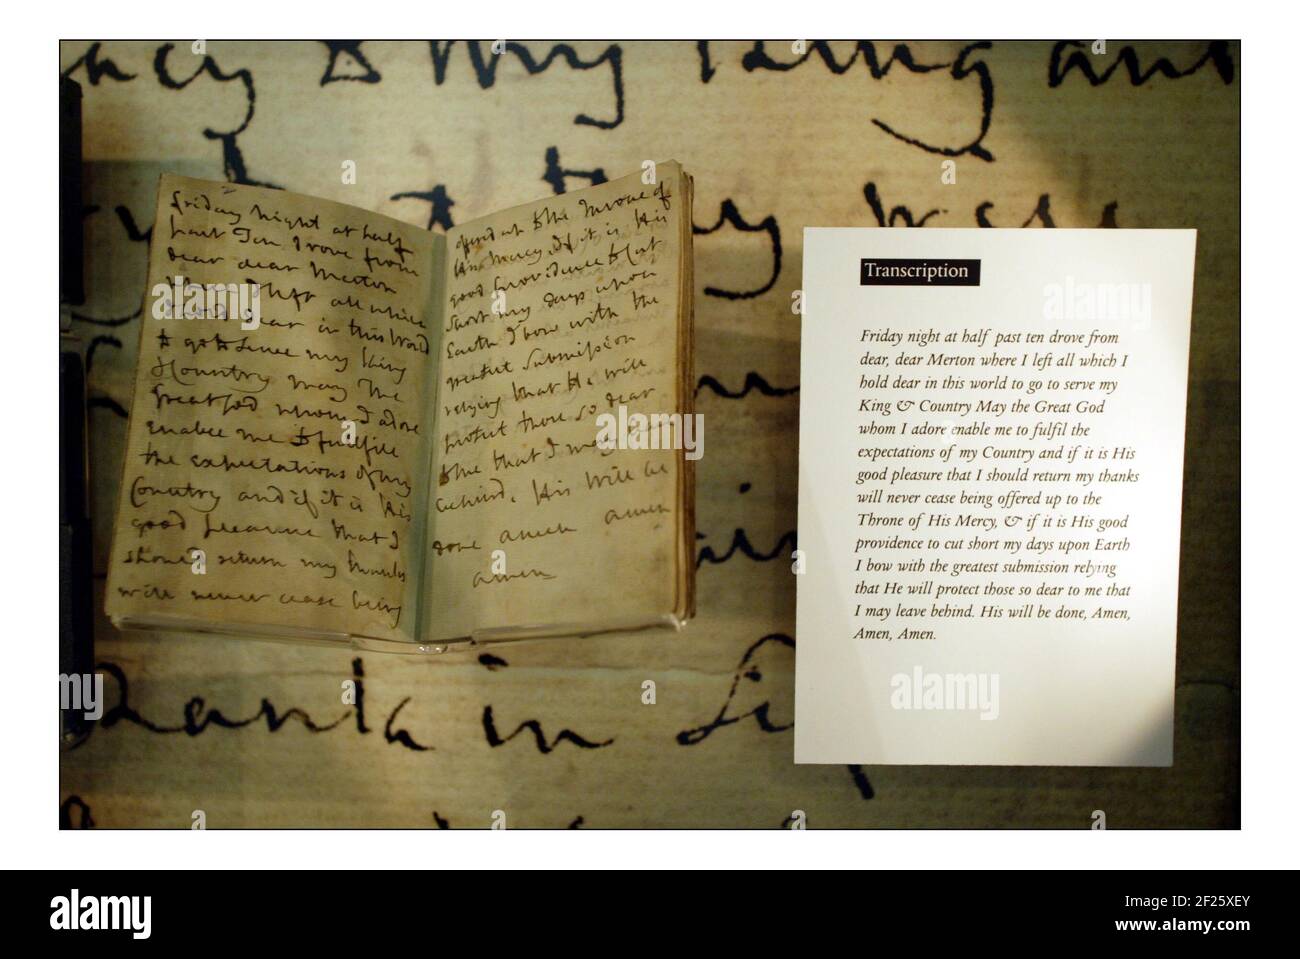 acy & my King and
Friday night at half
past Ten drove from
dear dear Merton
where I left all which
I hold dear in this World
to go to serve my King
& Country May the
Great God whom I adore
enable me to fullfill
the expectations of my
Country and if it is His
good pleasure that I
should return my thanks
will never cease being
offered up to the Throne of
His Mercy, If it is His
good providence to cut
short my days upon
Earth I bow with the
greatest submission
relying that He will
protect those so dear
to me that I may leave
behind. His Will be
done amen amen
amen
Transcription
Friday night at half past ten drove from
dear, dear Merton where I left all which I
hold dear in this world to go to serve my
King & Country May the Great God
whom I adore enable me to fulfil the
expectations of my Country and if it is His
good pleasure that I should return my thanks
will never cease being offered up to the
Throne of His Mercy, & if it is His good
providence to cut short my days upon Earth
I bow with the greatest submission relying
that He will protect those so dear to me that
I may leave behind. His will be done, Amen,
Amen, Amen.
in
alamy
a
alamy
Image ID: 2F25XEY
www.alamy.com